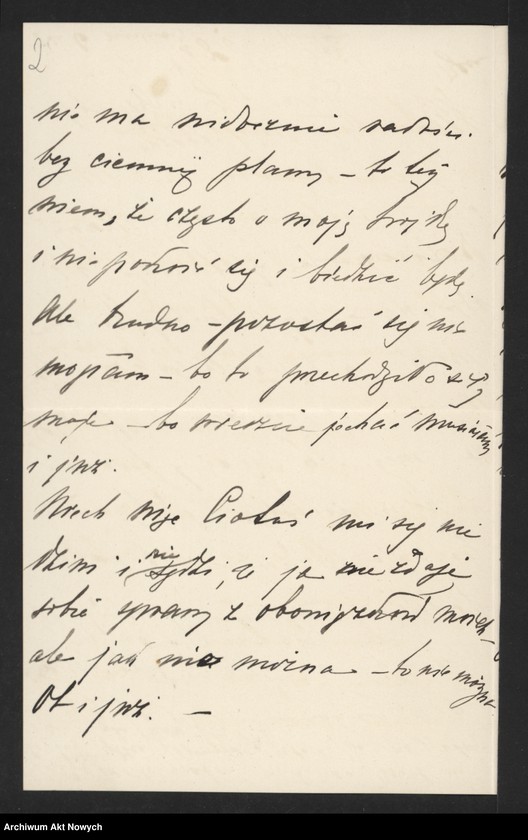 2
nie ma widocznie radości
bez ciemnej plamy – to też
wiem, że często o moją trójkę
i niepokoić się i biedzić będę.
Ale trudno – pozostać się nie
mogłam – bo to przechodziło siły
moje – bo wreszcie jechać musiałam
i już.
Niech więc Ciotuś mi się nie
dziwi i nie sądzi, że ja nie zdaję
sobie sprawy z obowiązków moich –
ale jak nie można – to nie można
Ot i już. –
Archiwum Akt Nowych